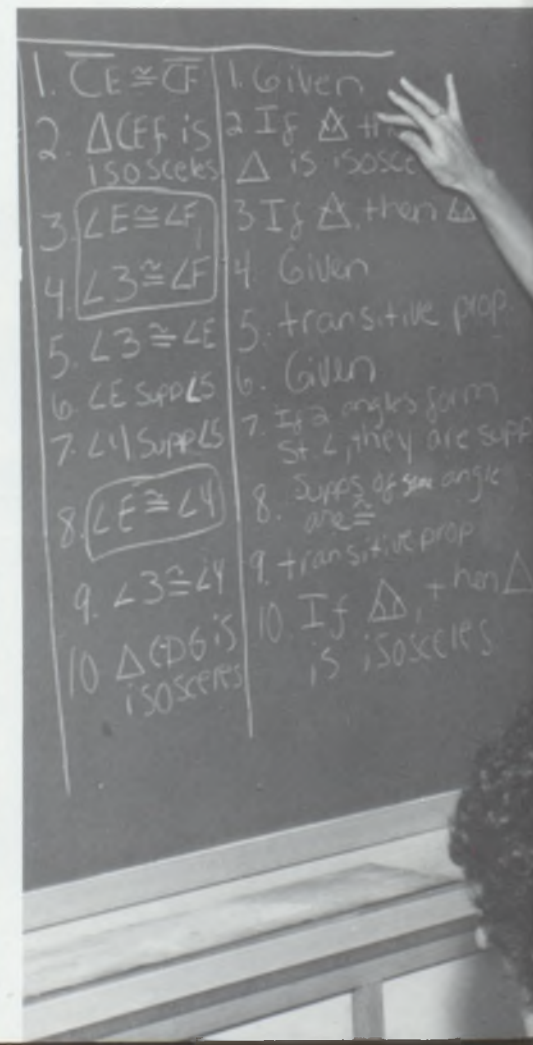 1. CE ≅ CF 1. Given
2. △CEF is 2 If △
isosceles △ is isosce
3. ∠E ≅ ∠F, 3 If △, then △
4. ∠3 ≅ ∠F 4. Given
5. ∠3 ≅ ∠E 5. transitive prop.
6. ∠E Supp ∠5 6. Given
7. ∠4 Supp ∠5 7. If 2 angles form
St ∠, they are supp
8. ∠E ≅ ∠4 8. Supps of same angle
are ≅
9. ∠3 ≅ ∠4 9. transitive prop
10 △CDG is 10. If △, then △
isosceles is isosceles